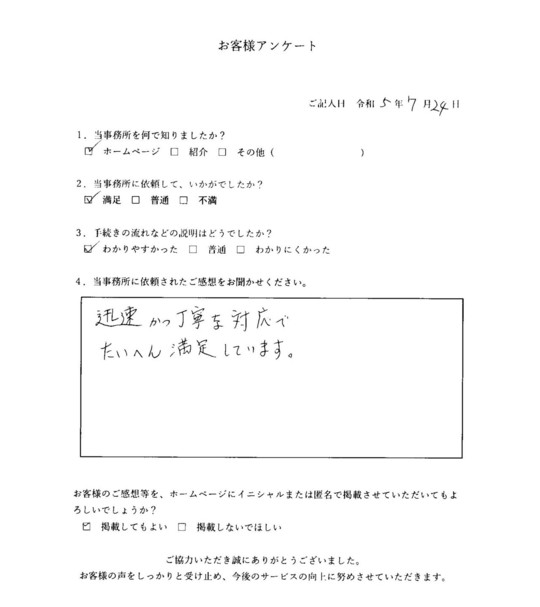 お客様アンケート
ご記入日 令和 5 年 7 月 24 日
1．当事務所を何で知りましたか？
☑ ホームページ □ 紹介 □ その他（ ）
2．当事務所に依頼して、いかがでしたか？
☑ 満足 □ 普通 □ 不満
3．手続きの流れなどの説明はどうでしたか？
☑ わかりやすかった □ 普通 □ わかりにくかった
4．当事務所に依頼されたご感想をお聞かせください。
迅速かつ丁寧な対応で
たいへん満足しています。
お客様のご感想等を、ホームページにイニシャルまたは匿名で掲載させていただいてもよ
ろしいでしょうか？
☑ 掲載してもよい □ 掲載しないでほしい
ご協力いただき誠にありがとうございました。
お客様の声をしっかりと受け止め、今後のサービスの向上に努めさせていただきます。